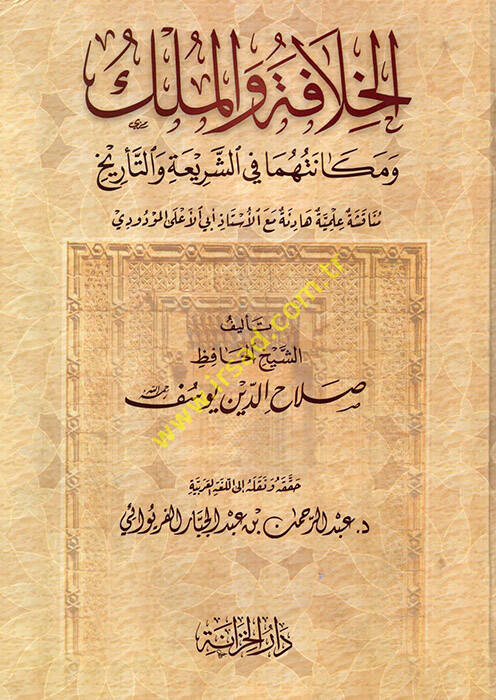 الخِلَافَةُ وَالمُلْكُ
وَمَكَانَتُهُمَا فِي الشَّرِيعَةِ وَالتَّأْرِيخِ
مُنَاقَشَةٌ عِلْمِيَّةٌ هَادِئَةٌ مَعَ الأُسْتَاذِ أَبِي الأَعْلَى المَوْدُودِيْ
تَأْلِيفُ
الشَّيْخِ الحَافِظِ
صَلَاحِ الدِّيْنِ يُوسُف رحمه الله
www.irsad.com.tr
حَقَّقَهُ وَنَقَلَهُ إِلَى اللُّغَةِ العَرَبِيَّةِ
د. عَبْدُ الرَّحْمٰنِ بْنُ عَبْدِ الجَبَّارِ الفَرِيوَائِي
دَارُ الخِزَانَةِ